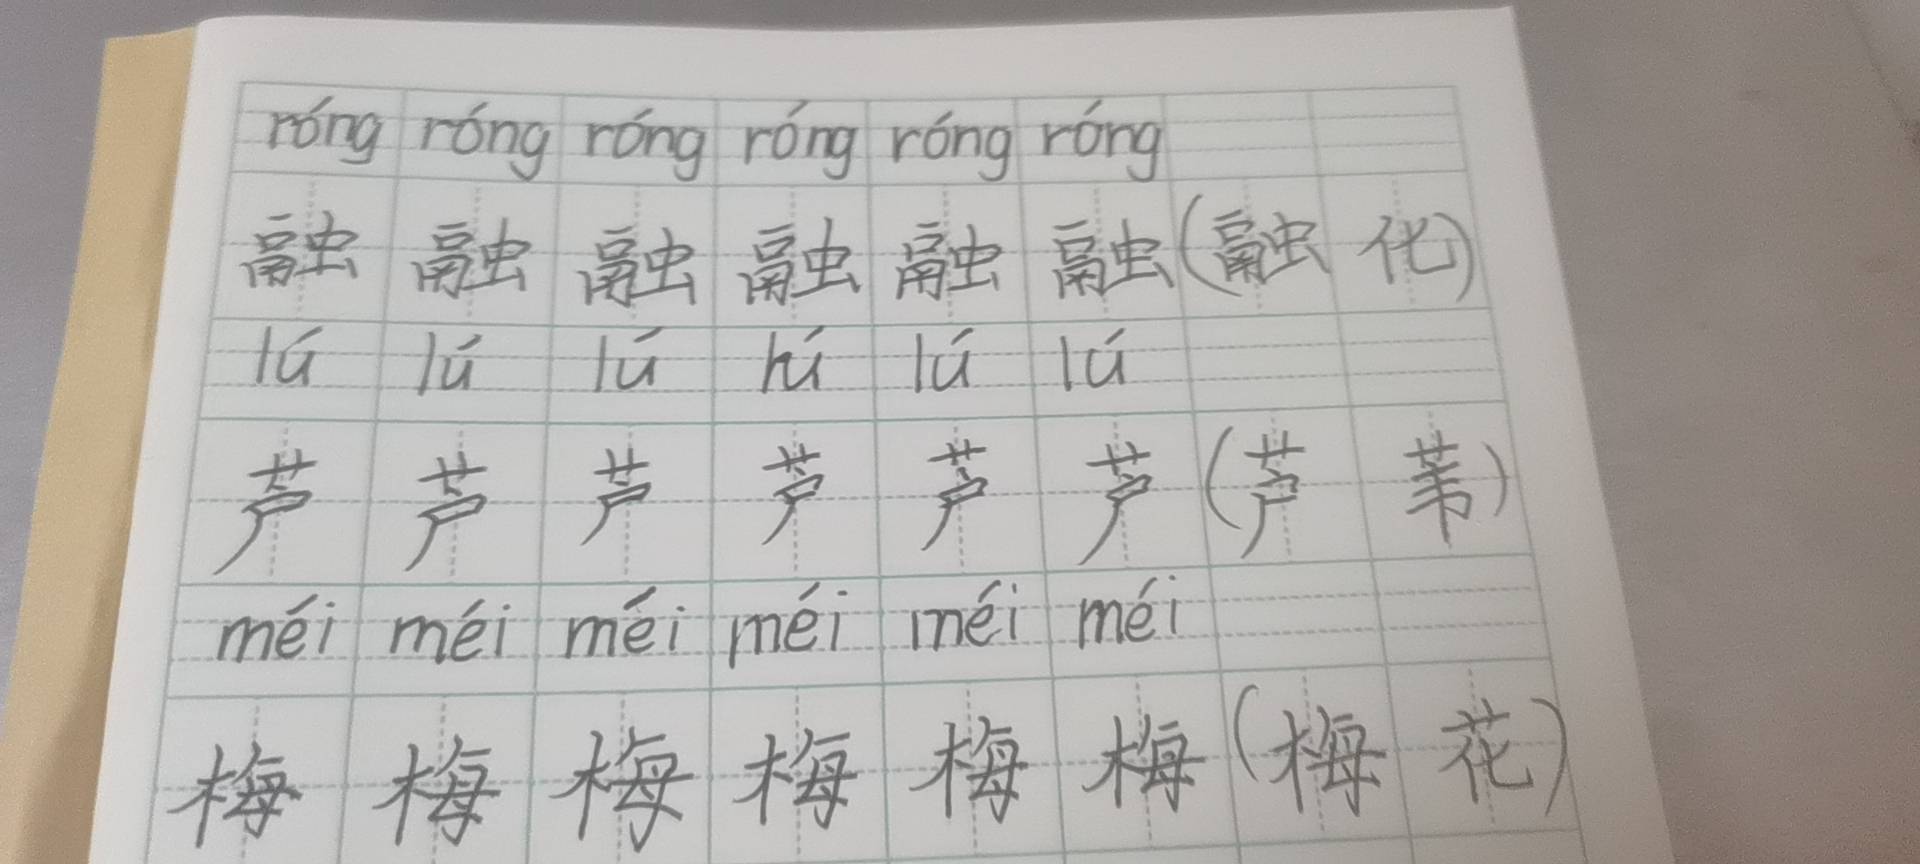 róng róng róng róng róng róng
融 融 融 融 融 融 (融 化)
lú lú lú lú lú lú
芦 芦 芦 芦 芦 芦 (芦 苇)
méi méi méi méi méi méi
梅 梅 梅 梅 梅 梅 (梅 花)